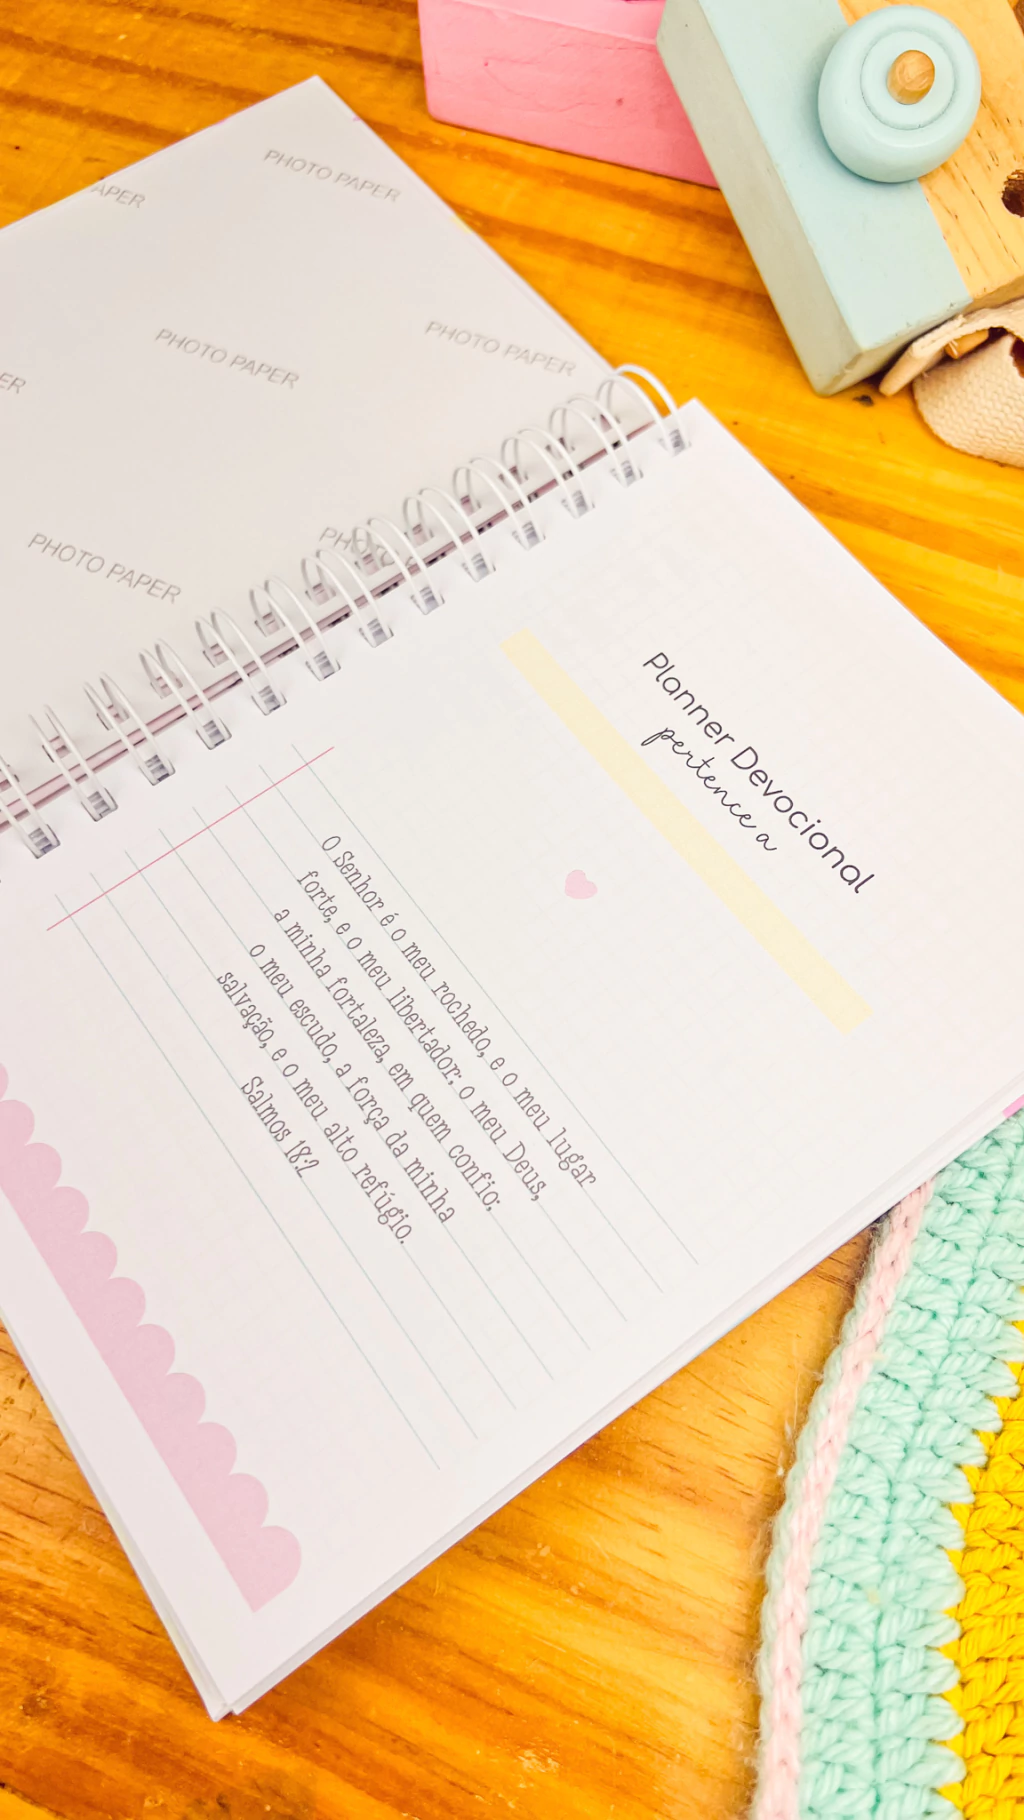 APER
PHOTO PAPER
ER
PHOTO PAPER
PHOTO PAPER
PHOTO PAPER
Planner Devocional
pertence a
O Senhor é o meu rochedo, e o meu lugar
forte, e o meu libertador; o meu Deus,
a minha fortaleza, em quem confio;
o meu escudo, a força da minha
salvação, e o meu alto refúgio.
Salmos 18:2